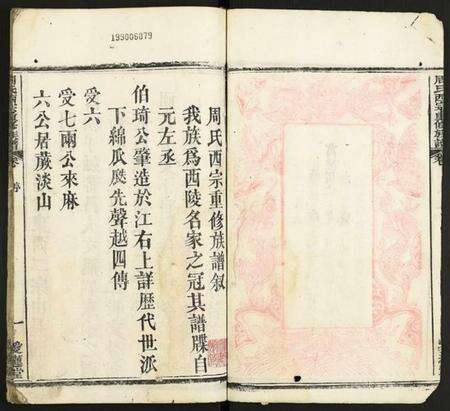 199006079
周氏西宗重修族譜叙
我族爲西陵名家之冠其譜牒自
元左丞
伯琦公肇造於江右上詳歷代世派
下綿瓜瓞先聲越四傳
受六
受七兩公來麻
六公居蕨淡山
周氏西宗重修族譜
卷
序
一
愛蓮堂